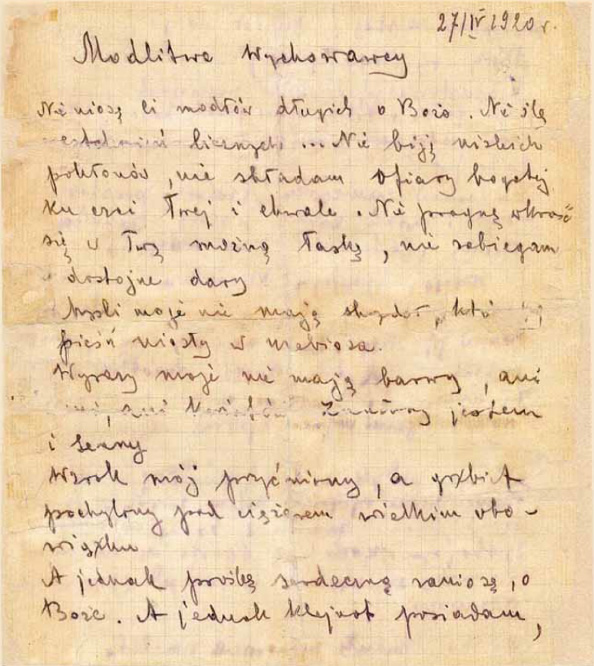 27/IV 1920 r.
Modlitwa Wychowawcy
Nie niosę Ci modłów długich o Boże. Nie ślę
licznych... Nie biję niskich
pokłonów, nie składam ofiary bogatej
ku czci Twej i chwale. Nie pragnę wkraść
się w Twą możną łaskę, nie zabiegam
o dostojne dary
Myśli moje nie mają
pieśń niosły w niebiosa.
Wyrazy moje nie mają barwy, ani
ani kwiatów Znużony jestem
i senny
Wzrok mój przyćmiony, a grzbiet
pochylony pod ciężarem wielkim obo-
wiązku
A jednak prośbę serdeczną zanoszę, o
Boże. A jednak klejnot posiadam,